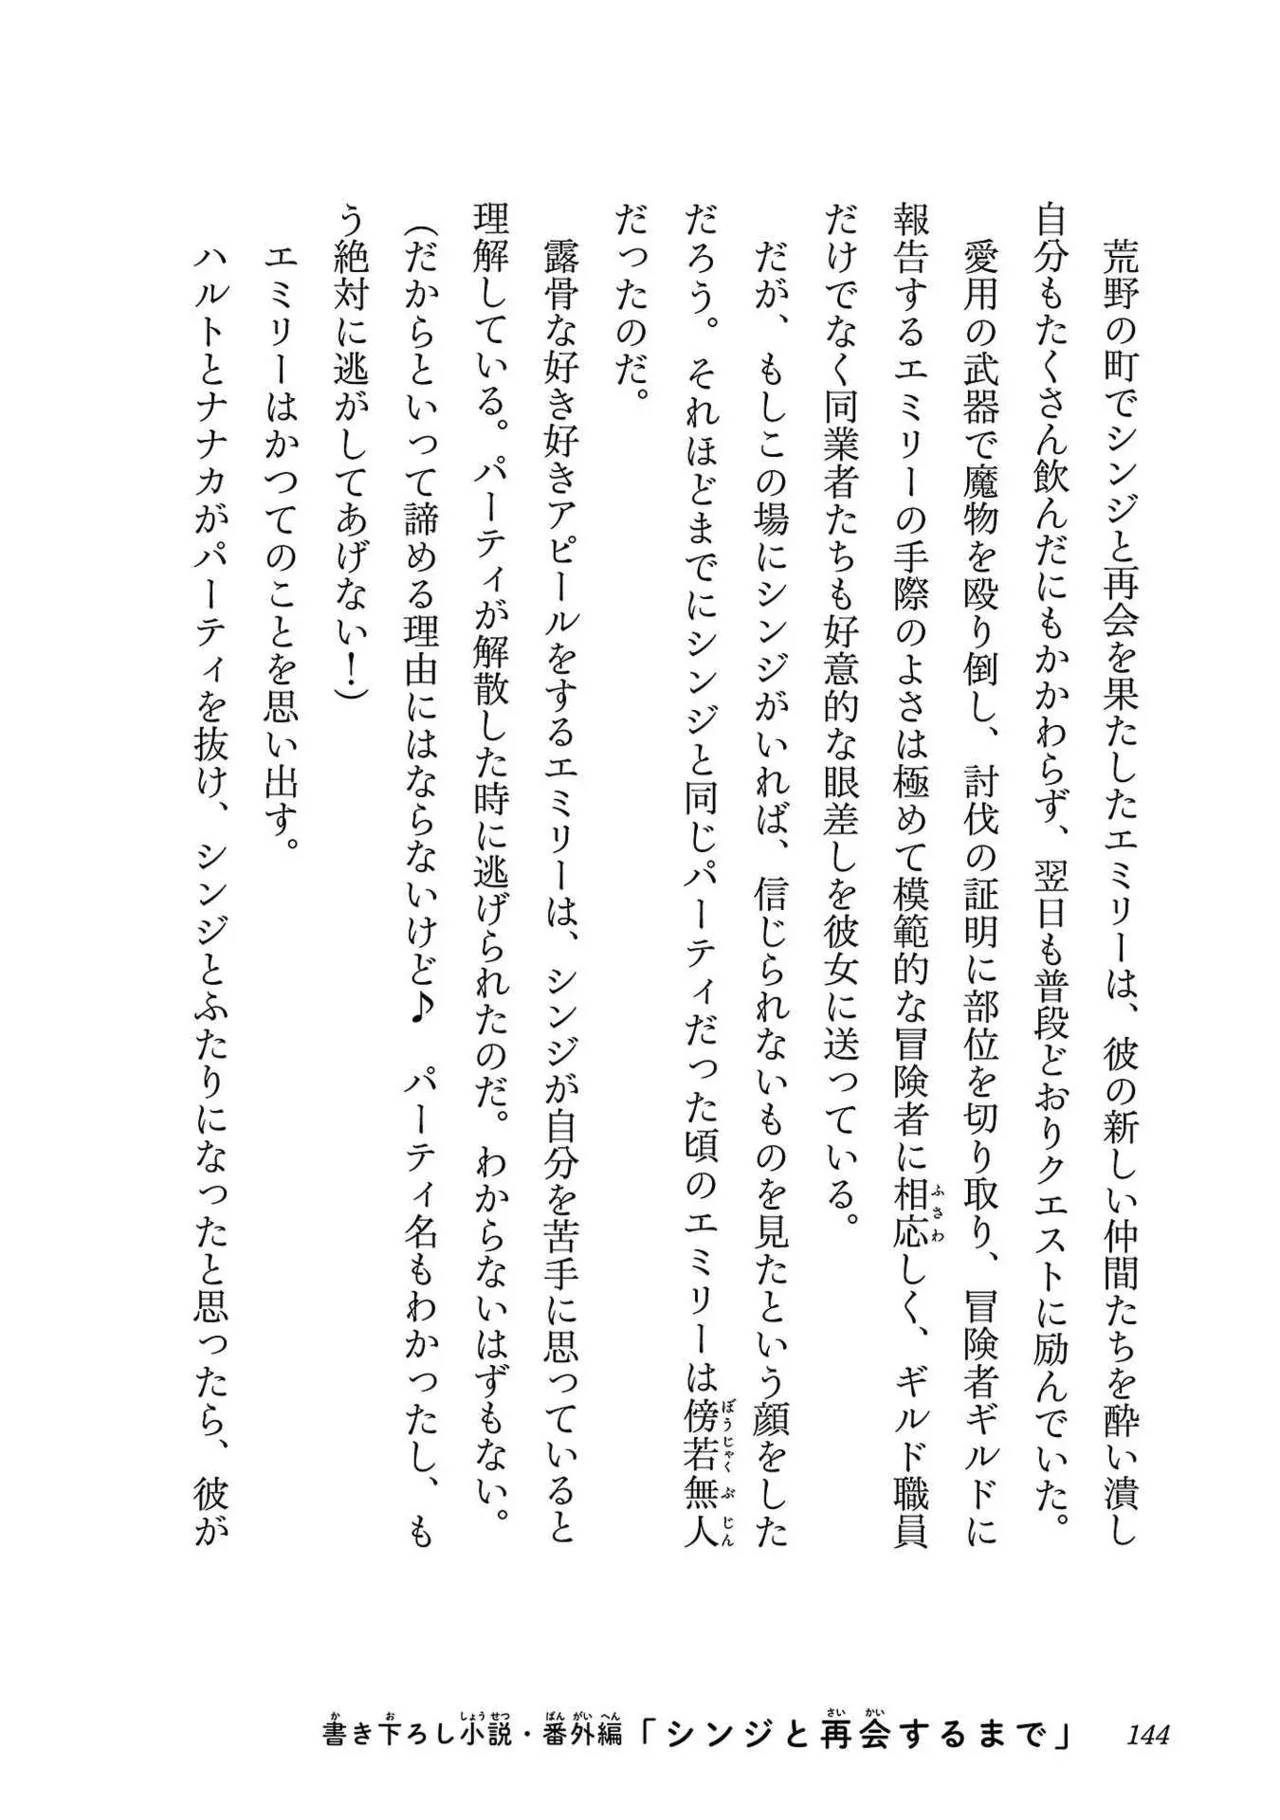 荒野の町でシンジと再会を果たしたエミリーは、彼の新しい仲間たちを酔い潰し
自分もたくさん飲んだにもかかわらず、翌日も普段どおりクエストに励んでいた。
　愛用の武器で魔物を殴り倒し、討伐の証明に部位を切り取り、冒険者ギルドに
報告するエミリーの手際のよさは極めて模範的な冒険者に相応しく、ギルド職員
だけでなく同業者たちも好意的な眼差しを彼女に送っている。
　だが、もしこの場にシンジがいれば、信じられないものを見たという顔をした
だろう。それほどまでにシンジと同じパーティだった頃のエミリーは傍若無人
だったのだ。
　露骨な好き好きアピールをするエミリーは、シンジが自分を苦手に思っていると
理解している。パーティが解散した時に逃げられたのだ。わからないはずもない。
（だからといって諦める理由にはならないけど♪　パーティ名もわかったし、も
う絶対に逃がしてあげない！）
　エミリーはかつてのことを思い出す。
　ハルトとナナカがパーティを抜け、シンジとふたりになったと思ったら、彼が
書き下ろし小説・番外編「シンジと再会するまで」 144